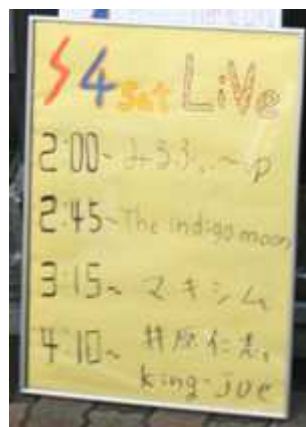 S4 Sat LiVe
2:00~ みろろ、~p
2:45~The indigo moon
3:15~ マキシム
4:10~ 井原仁志,
king-joe